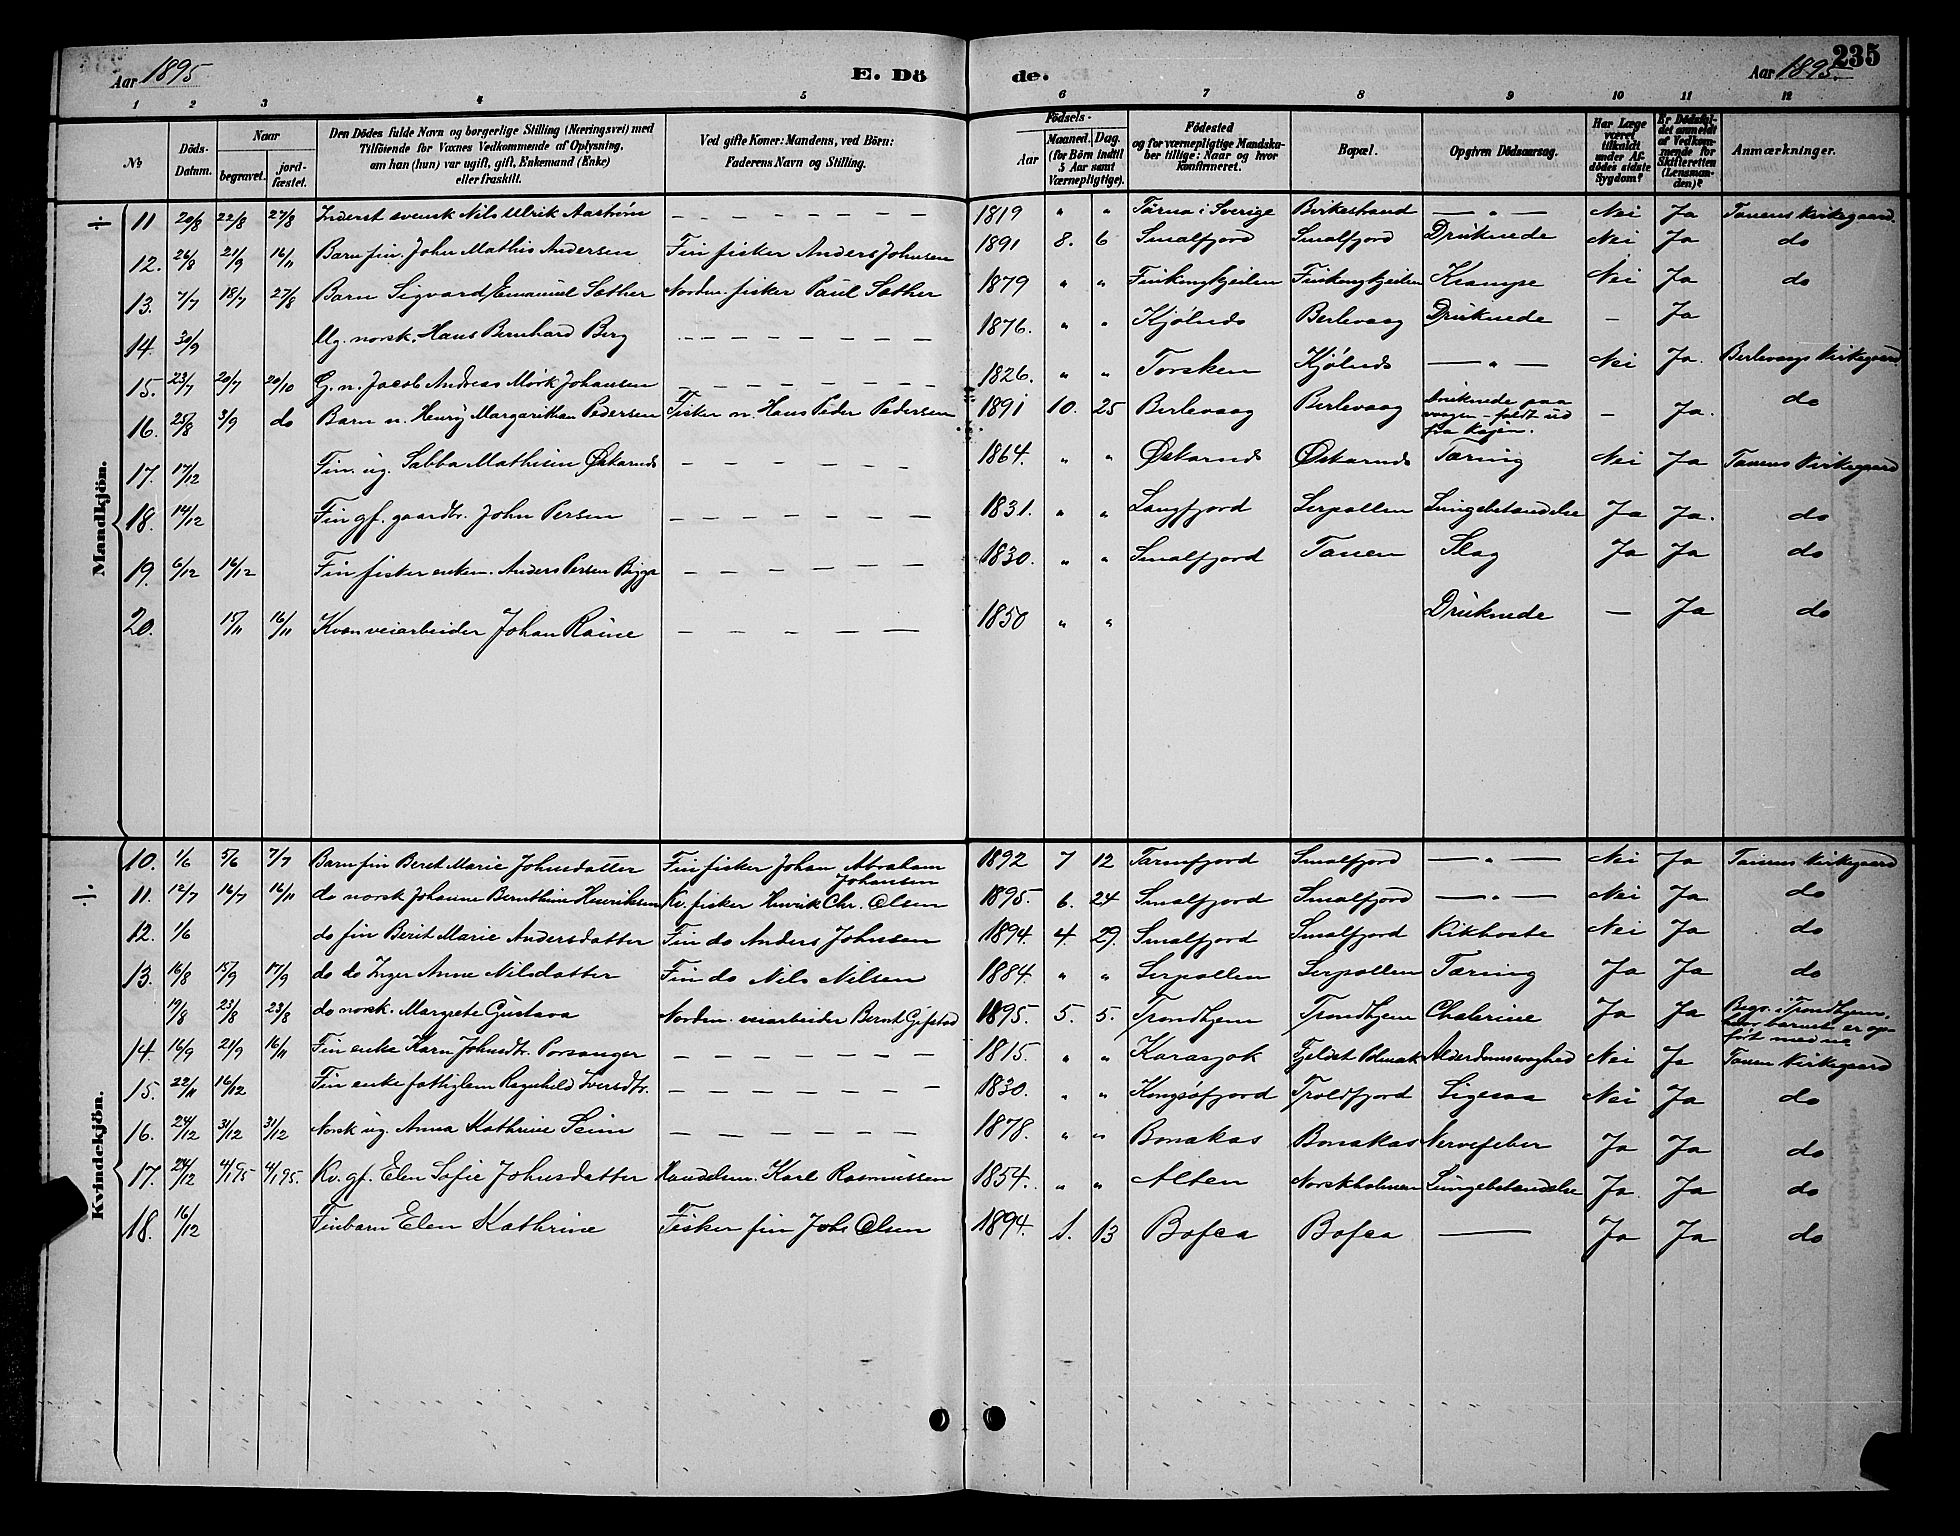 235
Aar 1895 E. Dö
de. Aar 1895.
1 2 3 4 5
6 7 8 9 10 11 12
No
Döds-Datum.
Naar
begravet.
jord-fæstet.
Den Dödes fulde Navn og borgerlige Stilling (Næringsvei) med
Tilföiende for Voxnes Vedkommende af Oplysning,
om han (hun) var ugift, gift, Enkemand (Enke)
eller fraskilt.
Ved gifte Koner: Mandens, ved Börn:
Faderens Navn og Stilling.
Födsels-
Aar
Maaned. Dag.
(for Börn indtil
5 Aar samt
Værnepligtige).
Födested
og for værnepligtige Mandska-
ber tillige: Naar og hvor
konfirmeret.
Bopæl.
Opgiven Dödsaarsag.
Har Læge
været
tilkaldt
under Af-
dödes sidste
Sygdom?
Er Dödsfal-
det anmeldt
af Vedkom-
mende for
Skifteretten
(Lensman-
den)?
Anmærkninger.
Mandkjön.
11 20/8 22/8 27/8 Inderst svensk Nils Ulrik Aaström — 1819 " " Tärna i Sverige Birkestrand — " — Nei Ja Tanens Kirkegaard.
12. 26/8 21/9 16/11 Barn fin. John Mathis Andersen Fin fisker Anders Johnsen 1891 8. 6 Smalfjord Smalfjord Druknede Nei Ja do
13. 7/7 18/7 27/8 Barn Sigvard Emanuel Sæther Nordm. fisker Paul Sæther 1879 " " Finkongkjeilen Finkongkjeilen Krampe Nei Ja do
14. 30/9 Ug. norsk. Hans Bernhard Berg — 1876. " " Kjølnes Berlevaag Druknede — Ja
15. 23/7 20/7 20/10 G. n. Jacob Andreas Mörk Johansen — 1826. " " Torsken Kjølnes — " — Nei Ja. Berlevaags Kirkegaard
16. 25/8 3/9 do Barn n. Henry Margarithan Pedersen Fisker n. Hans Peder Pedersen 1891 10. 25 Berlevaag Berlevaag druknede paa
vaagen - faldt ud
fra Kajen. — Ja. do
17. 17/12 Fin. ug. Sabba Mathisen Østarnes — 1864. " " Østarnes Østarnes Tæring Nei Ja Tanens Kirkegaard
18. 14/12 Fin gf. gaardbr. John Persen — 1831. " " Langfjord Serpollen Lungebetændelse Ja Ja. do
19. 6/12 16/12 Fin fisker enkem. Anders Persen Bigga — 1830. " " Smalfjord Tanen Slag Ja Ja do
20. 15/11 16/11 Kvæn veiarbeider Johan Raine — 1850 " " Druknede — Ja do
Kvindekjön.
10. 1/6 5/6 7/7 Barn fin Beret Marie Johnsdatter Fin fisker Johan Abraham
Johansen 1892 7 12 Tarmfjord Smalfjord — " — Nei Ja Tanens Kirkegaard
11. 12/7 16/7 16/11 do norsk Johanne Bernthine Henriksen Kv. fisker Henrik Chr. Olsen 1895. 6. 24 Smalfjord Smalfjord — " — Nei Ja do
12. 1/6 do fin Berit Marie Andersdatter Fin do Anders Johnsen 1894. 4. 29. Smalfjord Smalfjord Kikhoste Nei Ja do
13. 16/8 15/9 17/9 do do Inger Anne Nilsdatter Fin do Nils Nilsen 1884 " " Serpollen Serpollen Tæring Ja Ja do
19/8 23/8 23/8 do norsk. Margrete Gustava Nordm. veiarbeider Bernt Gifstad 1895. 5. 5. Trondhjem Trondhjem Cholerine Ja Ja Begr. i Trondhjem,
hvor barnet er op-
ført med no
14. 16/9 21/9 16/11 Fin enke Karn Johnsdtr. Porsanger — 1815. " " Karasjok Fjeldet Polmak Alderdomssvaghed Nei Ja Tanen Kirkegaard
15. 22/11 16/12 Fin enke fattiglem Ragnhild Iversdtr. — 1830. " " Kongsøfjord Troldfjord Ligesaa Nei Ja do
16. 24/12 31/12 31/12 Norsk ug. Anna Kathrine Seim — 1878. " " Bonakas Bonakas Nervefeber Ja Ja do
17. 24/12 4/1 95 4/1 95. Kv. gf. Elen Sofie Johnsdatter Handelsm. Karl Rasmussen 1854. " " Alten Norskholmen Lungebetændelse Ja. Ja do
18. 16/12 Finbarn Elen Kathrine Fisker fin Johs Olsen 1894. 1. 13 Bofca Bofca — Ja Ja do